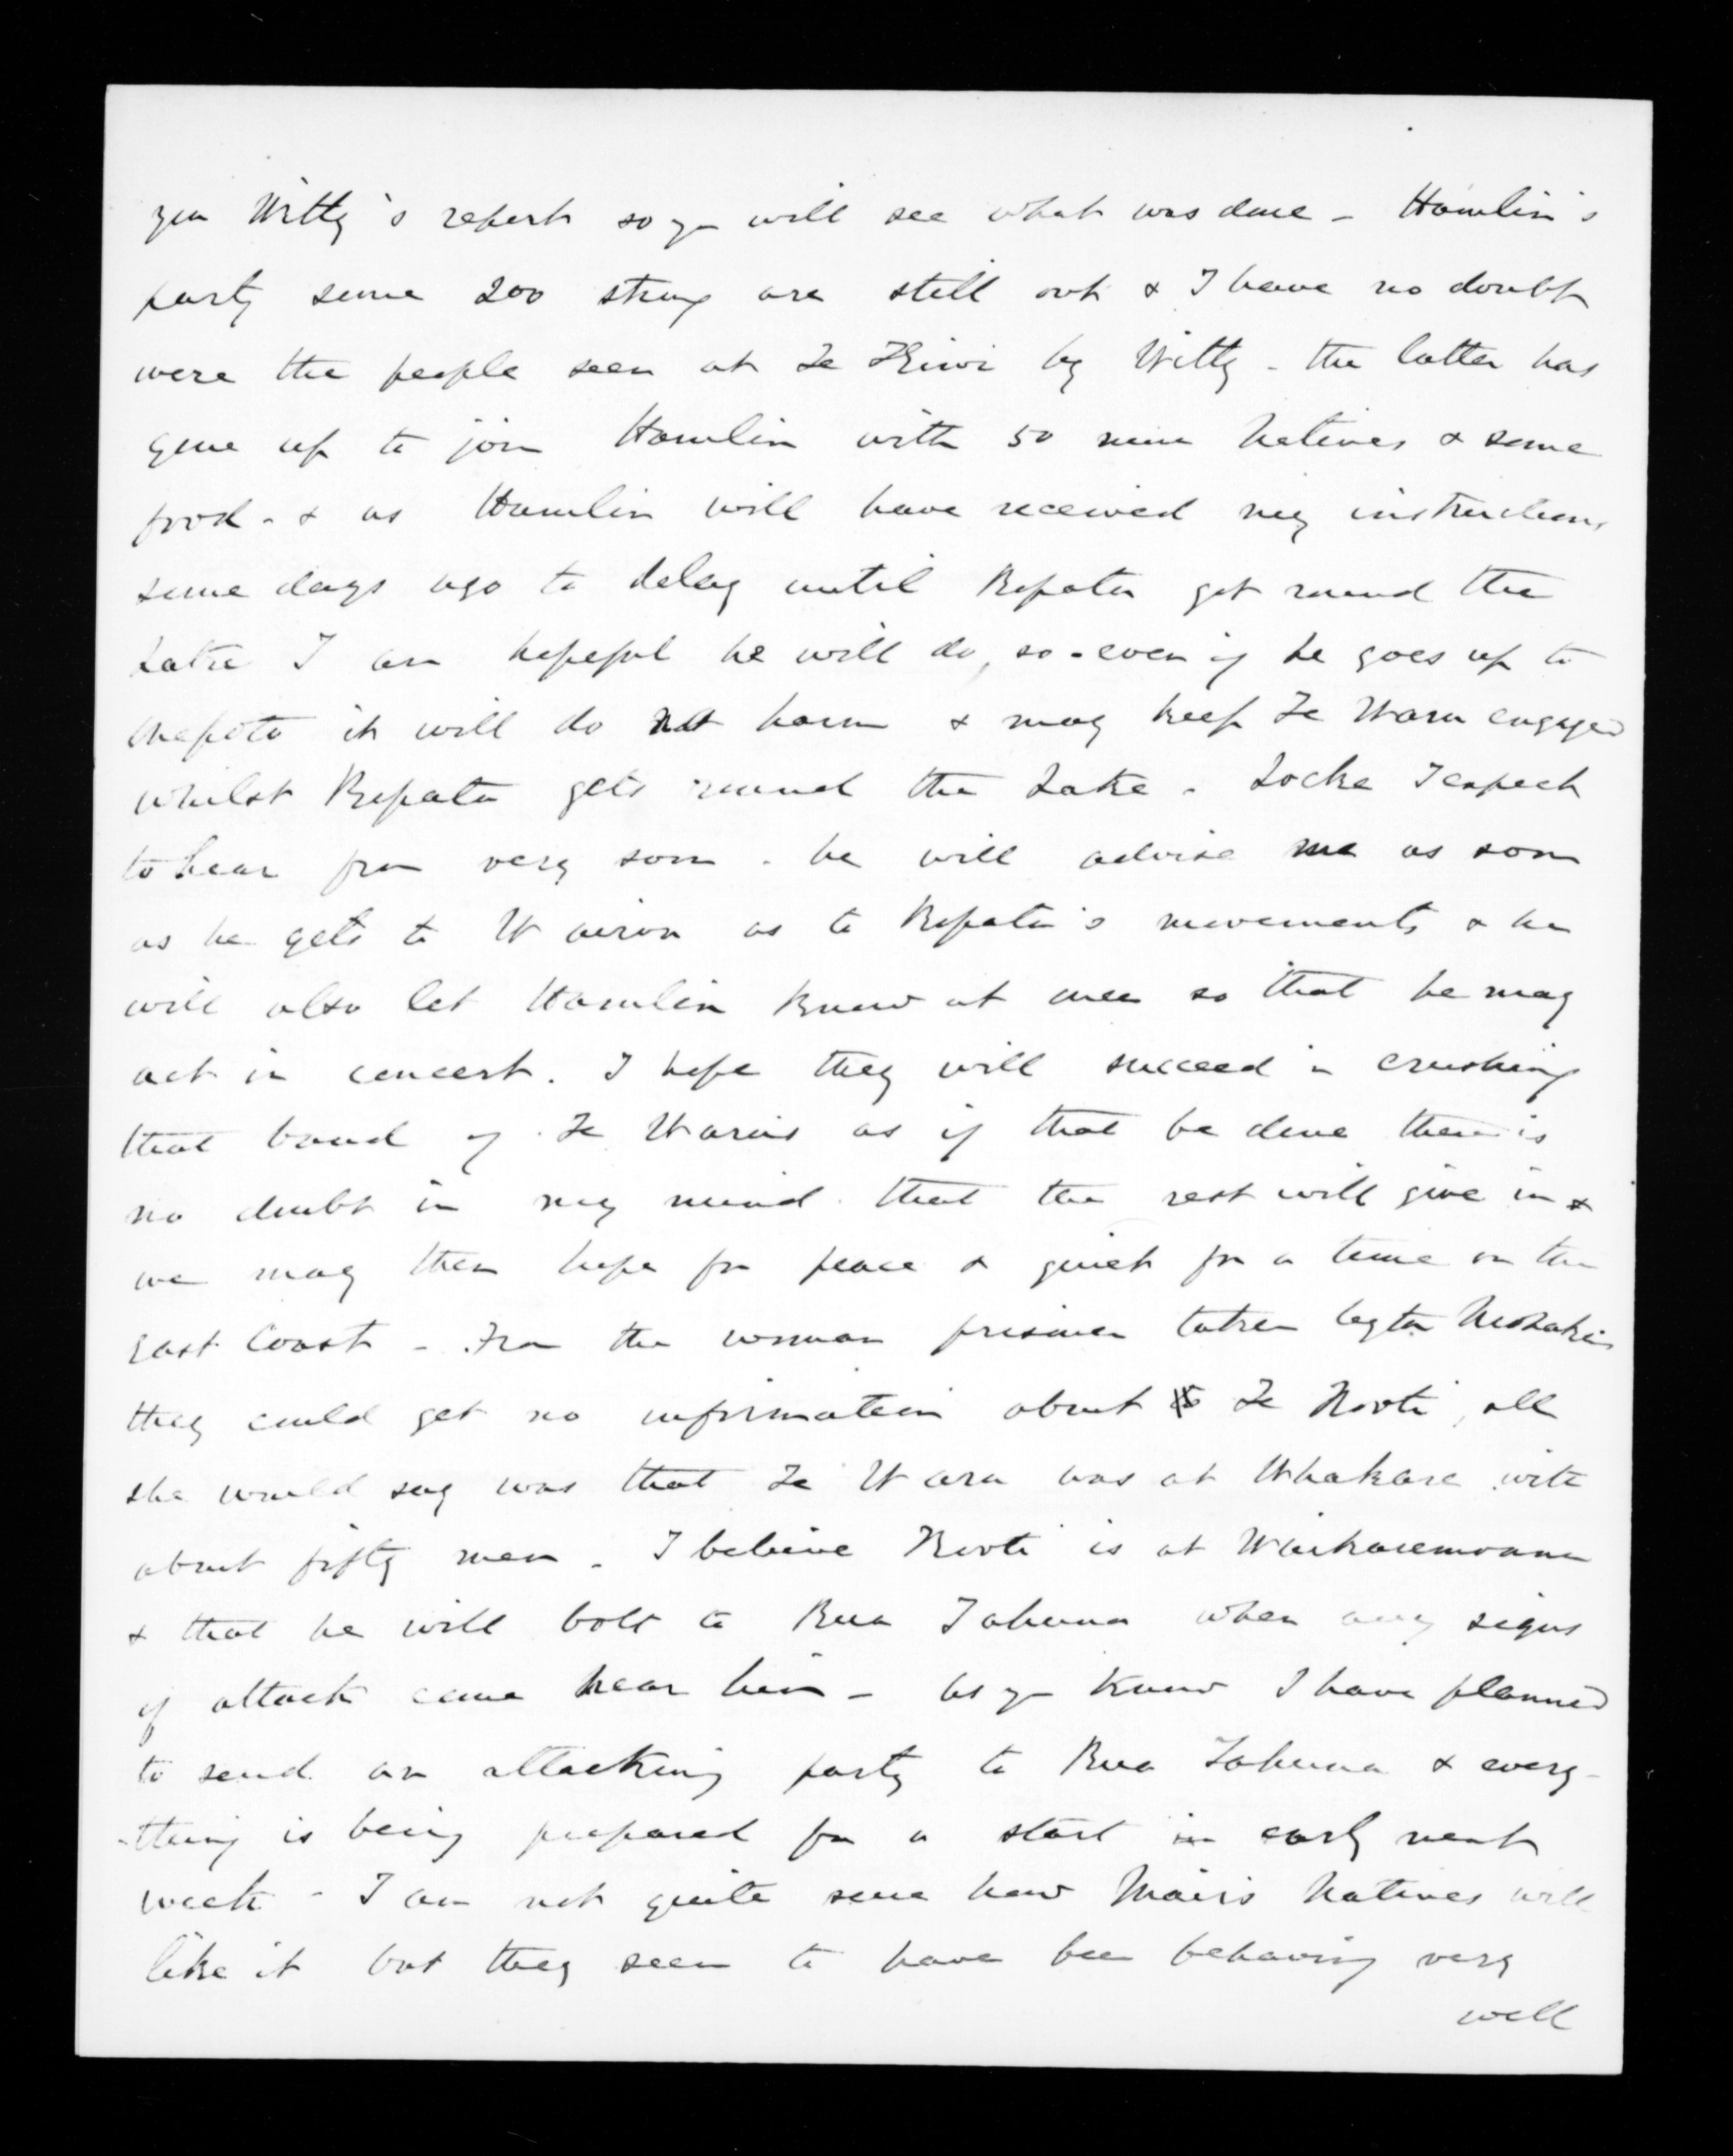 you Witty's report so you will see what was done - Hamlin's
party some 200 strong are still out & I have no doubt
were the people seen at Te Kiwi by Witty - the latter has
gone up to join Hamlin with 50 new Natives & some
food - & as Hamlin will have received my instructions
some days ago to delay until Ropata got round the
Lake I am hopeful he will do, so - even if he goes up to
Onepoto it will do not harm & may keep Te Waru engaged
whilst Ropata gets round the Lake - Locke I expect
to hear from very soon - he will advise me as soon
as he gets to Wairoa as to Ropata's movements & he
will also let Hamlin know at once so that he may
act in concert. I hope they will succeed in crushing
that band of Te Waru's as if that be done there is
no doubt in my mind that the rest will give in &
we may then hope for peace & quiet for a time on the
East Coast - From the woman prisoner taken by the
they could get no information about Te Kooti, all
she would say was that Te Waru was at Whakare with
about fifty men - I believe Kooti is at Waikaremoana
& that he will bolt to Rua Tahuna when any signs
of attack come near him - As you know I have planned
to send an attacking party to Rua Tahuna & every-
-thing is being prepared for a start in early next
week - I am not quite sure how Mair's Natives will
like it but they seem to have been behaving very
well